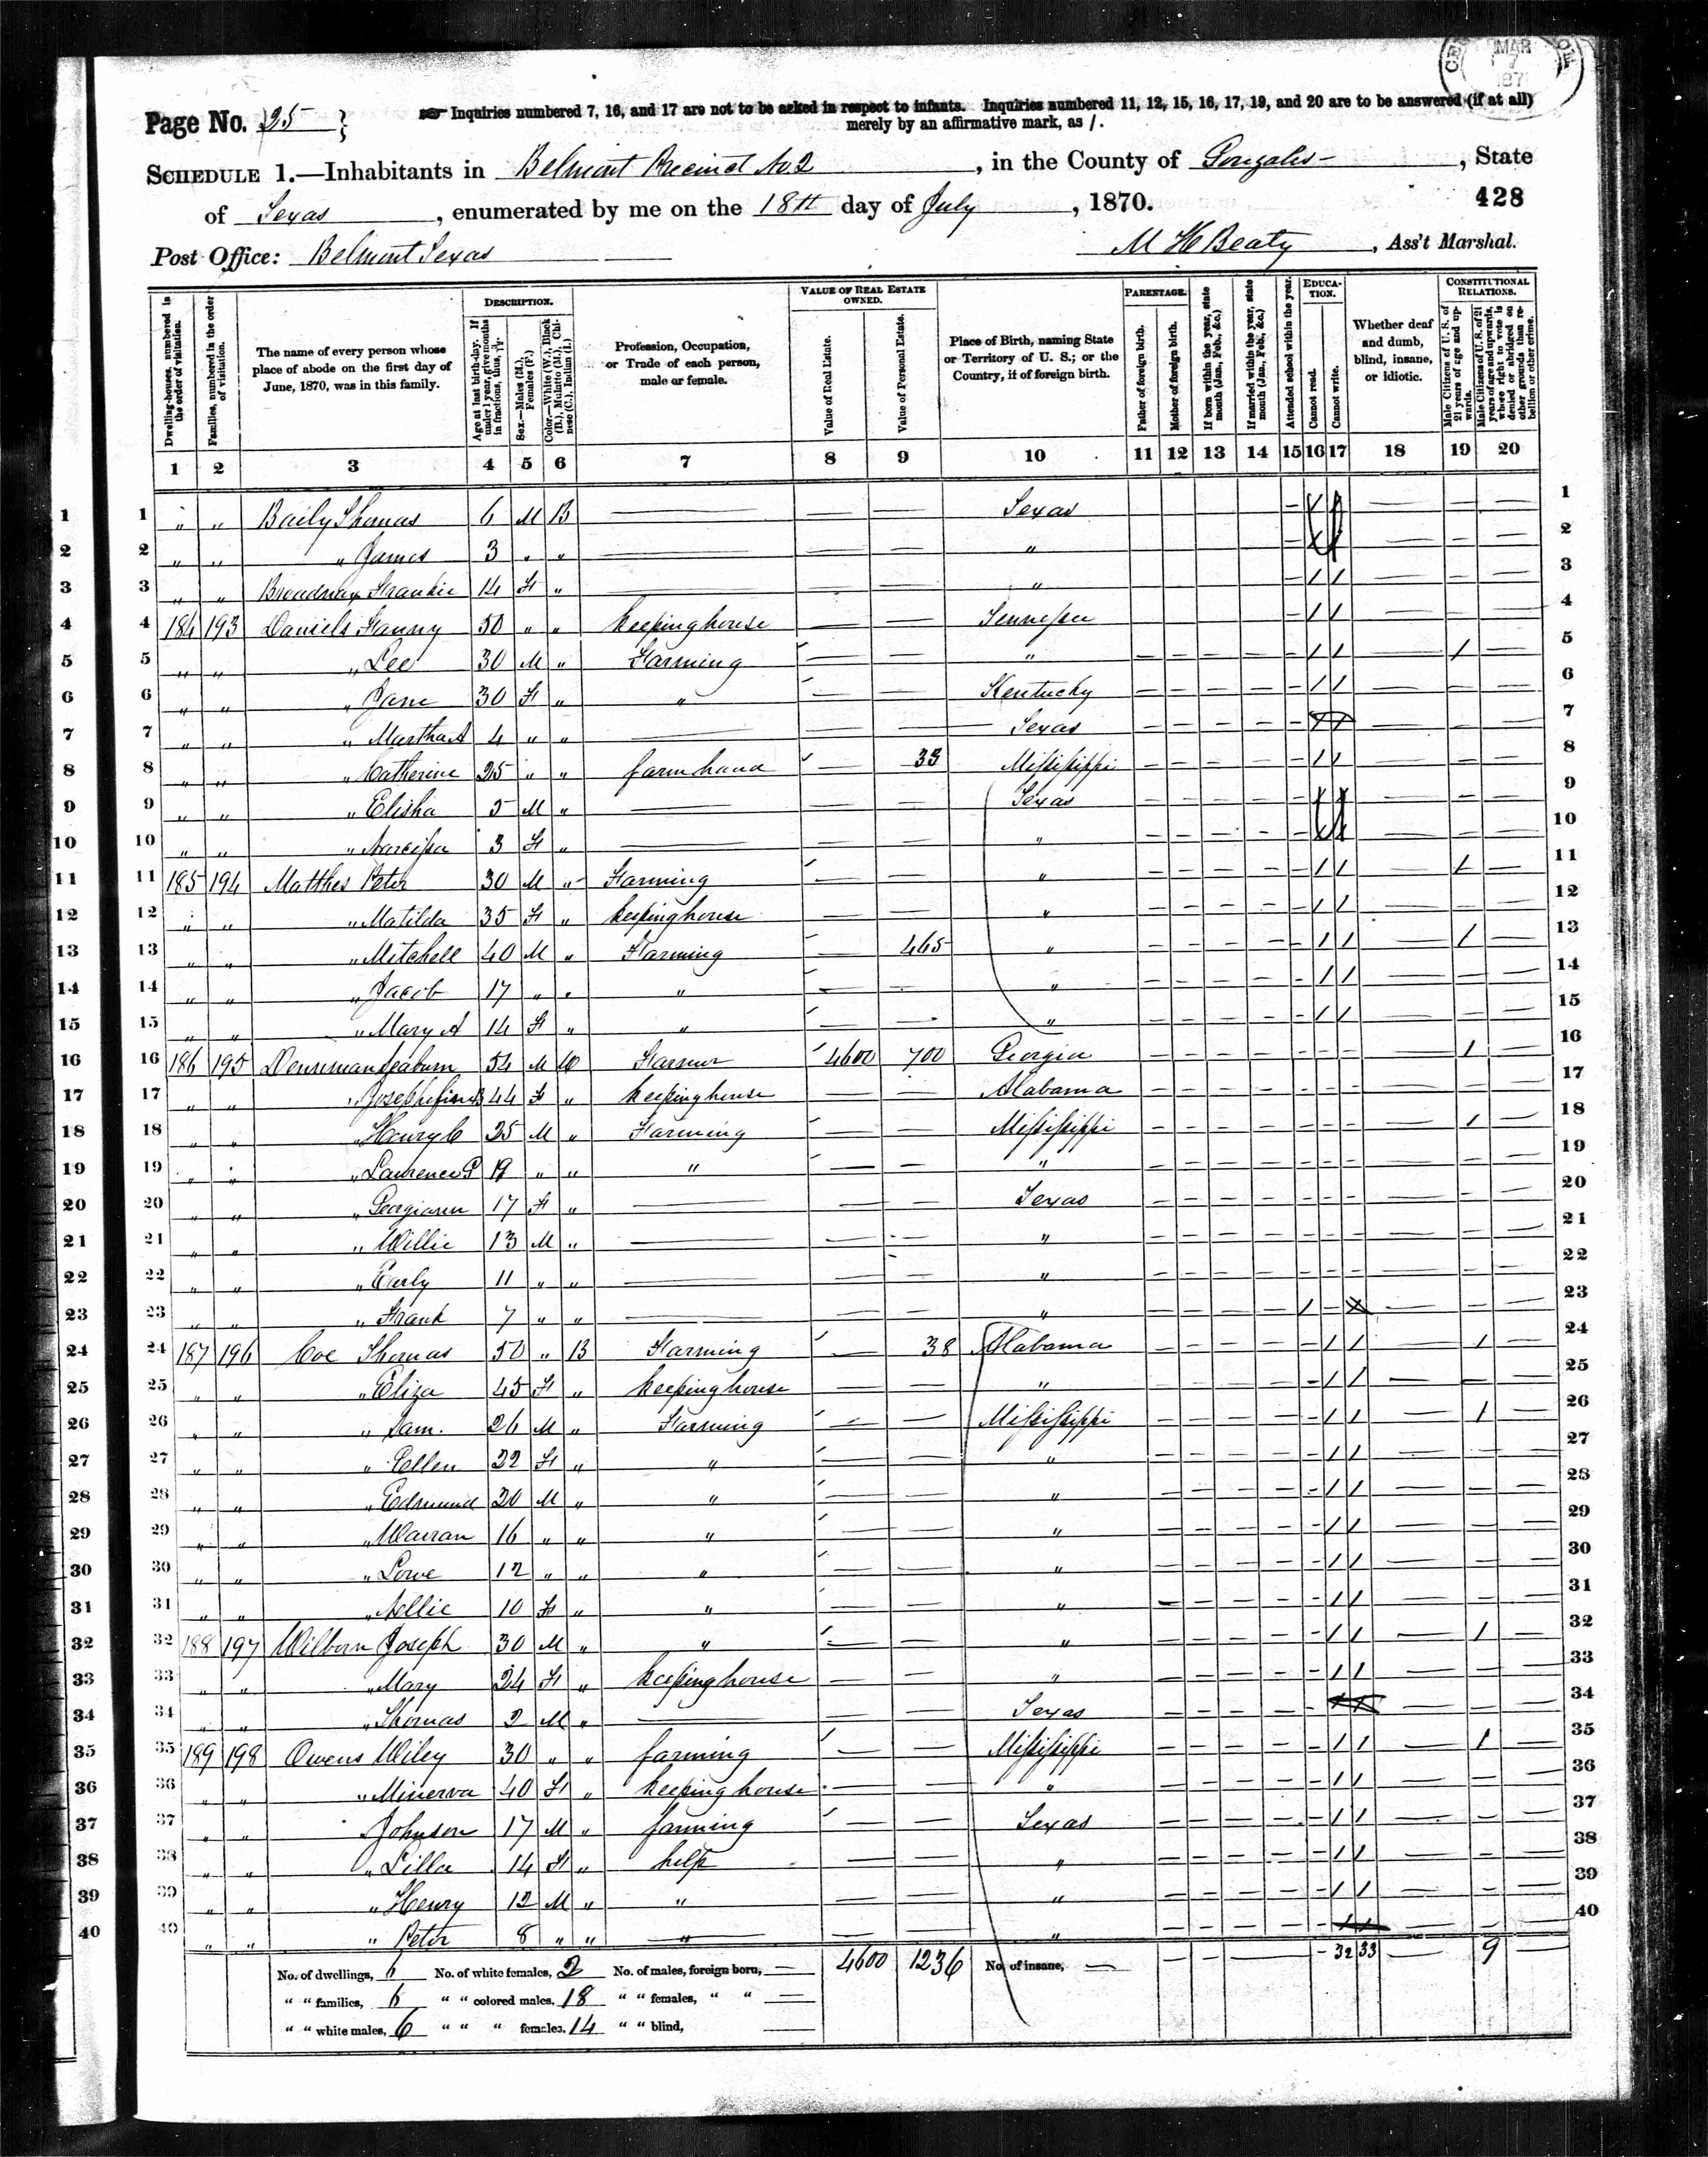 MAR
7
187
Page No. 25
Inquiries numbered 7, 16, and 17 are not to be asked in respect to infants. Inquiries numbered 11, 12, 15, 16, 17, 19, and 20 are to be answered (if at all)
merely by an affirmative mark, as /.
SCHEDULE 1.—Inhabitants in Belmont Precinct No 2, in the County of Gonzales, State
of Texas, enumerated by me on the 18th day of July, 1870. 428
Post Office: Belmont Texas M H Beaty, Ass't Marshal.
Dwelling-houses, numbered in the order of visitation.
Families, numbered in the order of visitation.
The name of every person whose place of abode on the first day of June, 1870, was in this family.
DESCRIPTION.
Age at last birth-day. If under 1 year, give months in fractions, thus,
Sex.—Males (M.), Females (F.)
Color.—White (W.), Black (B.), Mulatto (M.), Chinese (C.), Indian (I.)
Profession, Occupation, or Trade of each person, male or female.
VALUE OF REAL ESTATE OWNED.
Value of Real Estate.
Value of Personal Estate.
Place of Birth, naming State or Territory of U. S.; or the Country, if of foreign birth.
PARENTAGE.
Father of foreign birth.
Mother of foreign birth.
If born within the year, state month (Jan., Feb., &c.)
If married within the year, state month (Jan., Feb., &c.)
Attended school within the year.
EDUCATION.
Cannot read.
Cannot write.
Whether deaf and dumb, blind, insane, or idiotic.
CONSTITUTIONAL RELATIONS.
Male Citizens of U. S. of 21 years of age and upwards.
Male Citizens of U. S. of 21 years of age and upwards, whose right to vote is denied or abridged on other grounds than rebellion or other crime.
1 2 3 4 5 6 7 8 9 10 11 12 13 14 15 16 17 18 19 20
1 1 " " Baily Thomas 6 M B — — — Texas 1
2 2 " " " James 3 " " — — — " 2
3 3 " " Broadnax Frankie 14 F " — — — " / / 3
4 4 184 193 Daniels Fanny 50 " " keeping house — — Tennessee / / 4
5 5 " " " Lee 30 M " Farming — — " / / / 5
6 6 " " " Jane 30 F " " — — Kentucky / / 6
7 7 " " " Martha A 4 " " — — — Texas 7
8 8 " " " Catherine 25 " " farm hand — 33 Mississippi / / 8
9 9 " " " Elisha 5 M " — — — Texas 9
10 10 " " " Narcissa 3 F " — — — " 10
11 11 185 194 Matthes Peter 30 M " Farming — — " / / / 11
12 12 " " " Matilda 35 F " keeping house — — " / / 12
13 13 " " " Mitchell 40 M " Farming — 465 " / / / 13
14 14 " " " Jacob 17 " " " — — " / / 14
15 15 " " " Mary A 14 F " " — — " / / 15
16 16 186 195 Denneman Seaburn 54 M W Farmer 4600 700 Georgia / 16
17 17 " " " Josephine B 44 F " keeping house — — Alabama 17
18 18 " " " Henry C 25 M " Farming — — Mississippi / 18
19 19 " " " Laurence P 19 " " " — — " 19
20 20 " " " Georgiann 17 F " — — — Texas 20
21 21 " " " Willie 13 M " — — — " 21
22 22 " " " Early 11 " " — — — " 22
23 23 " " " Frank 7 " " — — — " / 23
24 24 187 196 Coe Thomas 50 " B Farming — 38 Alabama / / / 24
25 25 " " " Eliza 45 F " keeping house — — " / / 25
26 26 " " " Sam. 26 M " Farming — — Mississippi / / / 26
27 27 " " " Ellen 22 F " " — — " / / 27
28 28 " " " Edmund 20 M " " — — " / / 28
29 29 " " " Warran 16 " " " — — " / / 29
30 30 " " " Lowe 12 " " " — — " / / 30
31 31 " " " Nellie 10 F " " — — " / / 31
32 32 188 197 Wilborn Joseph 30 M " " — — " / / / 32
33 33 " " " Mary 24 F " keeping house — — " / / 33
34 34 " " " Thomas 2 M " — — — Texas 34
35 35 189 198 Owens Wiley 30 " " farming — — Mississippi / / / 35
36 36 " " " Minerva 40 F " keeping house — — " / / 36
37 37 " " " Johnson 17 M " farming — — Texas / / 37
38 38 " " " Lilla 14 F " help — — " / / 38
39 39 " " " Henry 12 M " " — — " / / 39
40 40 " " " Peter 8 " " " — — " 40
No. of dwellings, 6 No. of white females, 2 No. of males, foreign born, — 4600 1236 No. of insane, — 32 33 9
" " families, 6 " " colored males, 18 " " females, " " —
" " white males, 6 " " " females, 14 " " blind, —